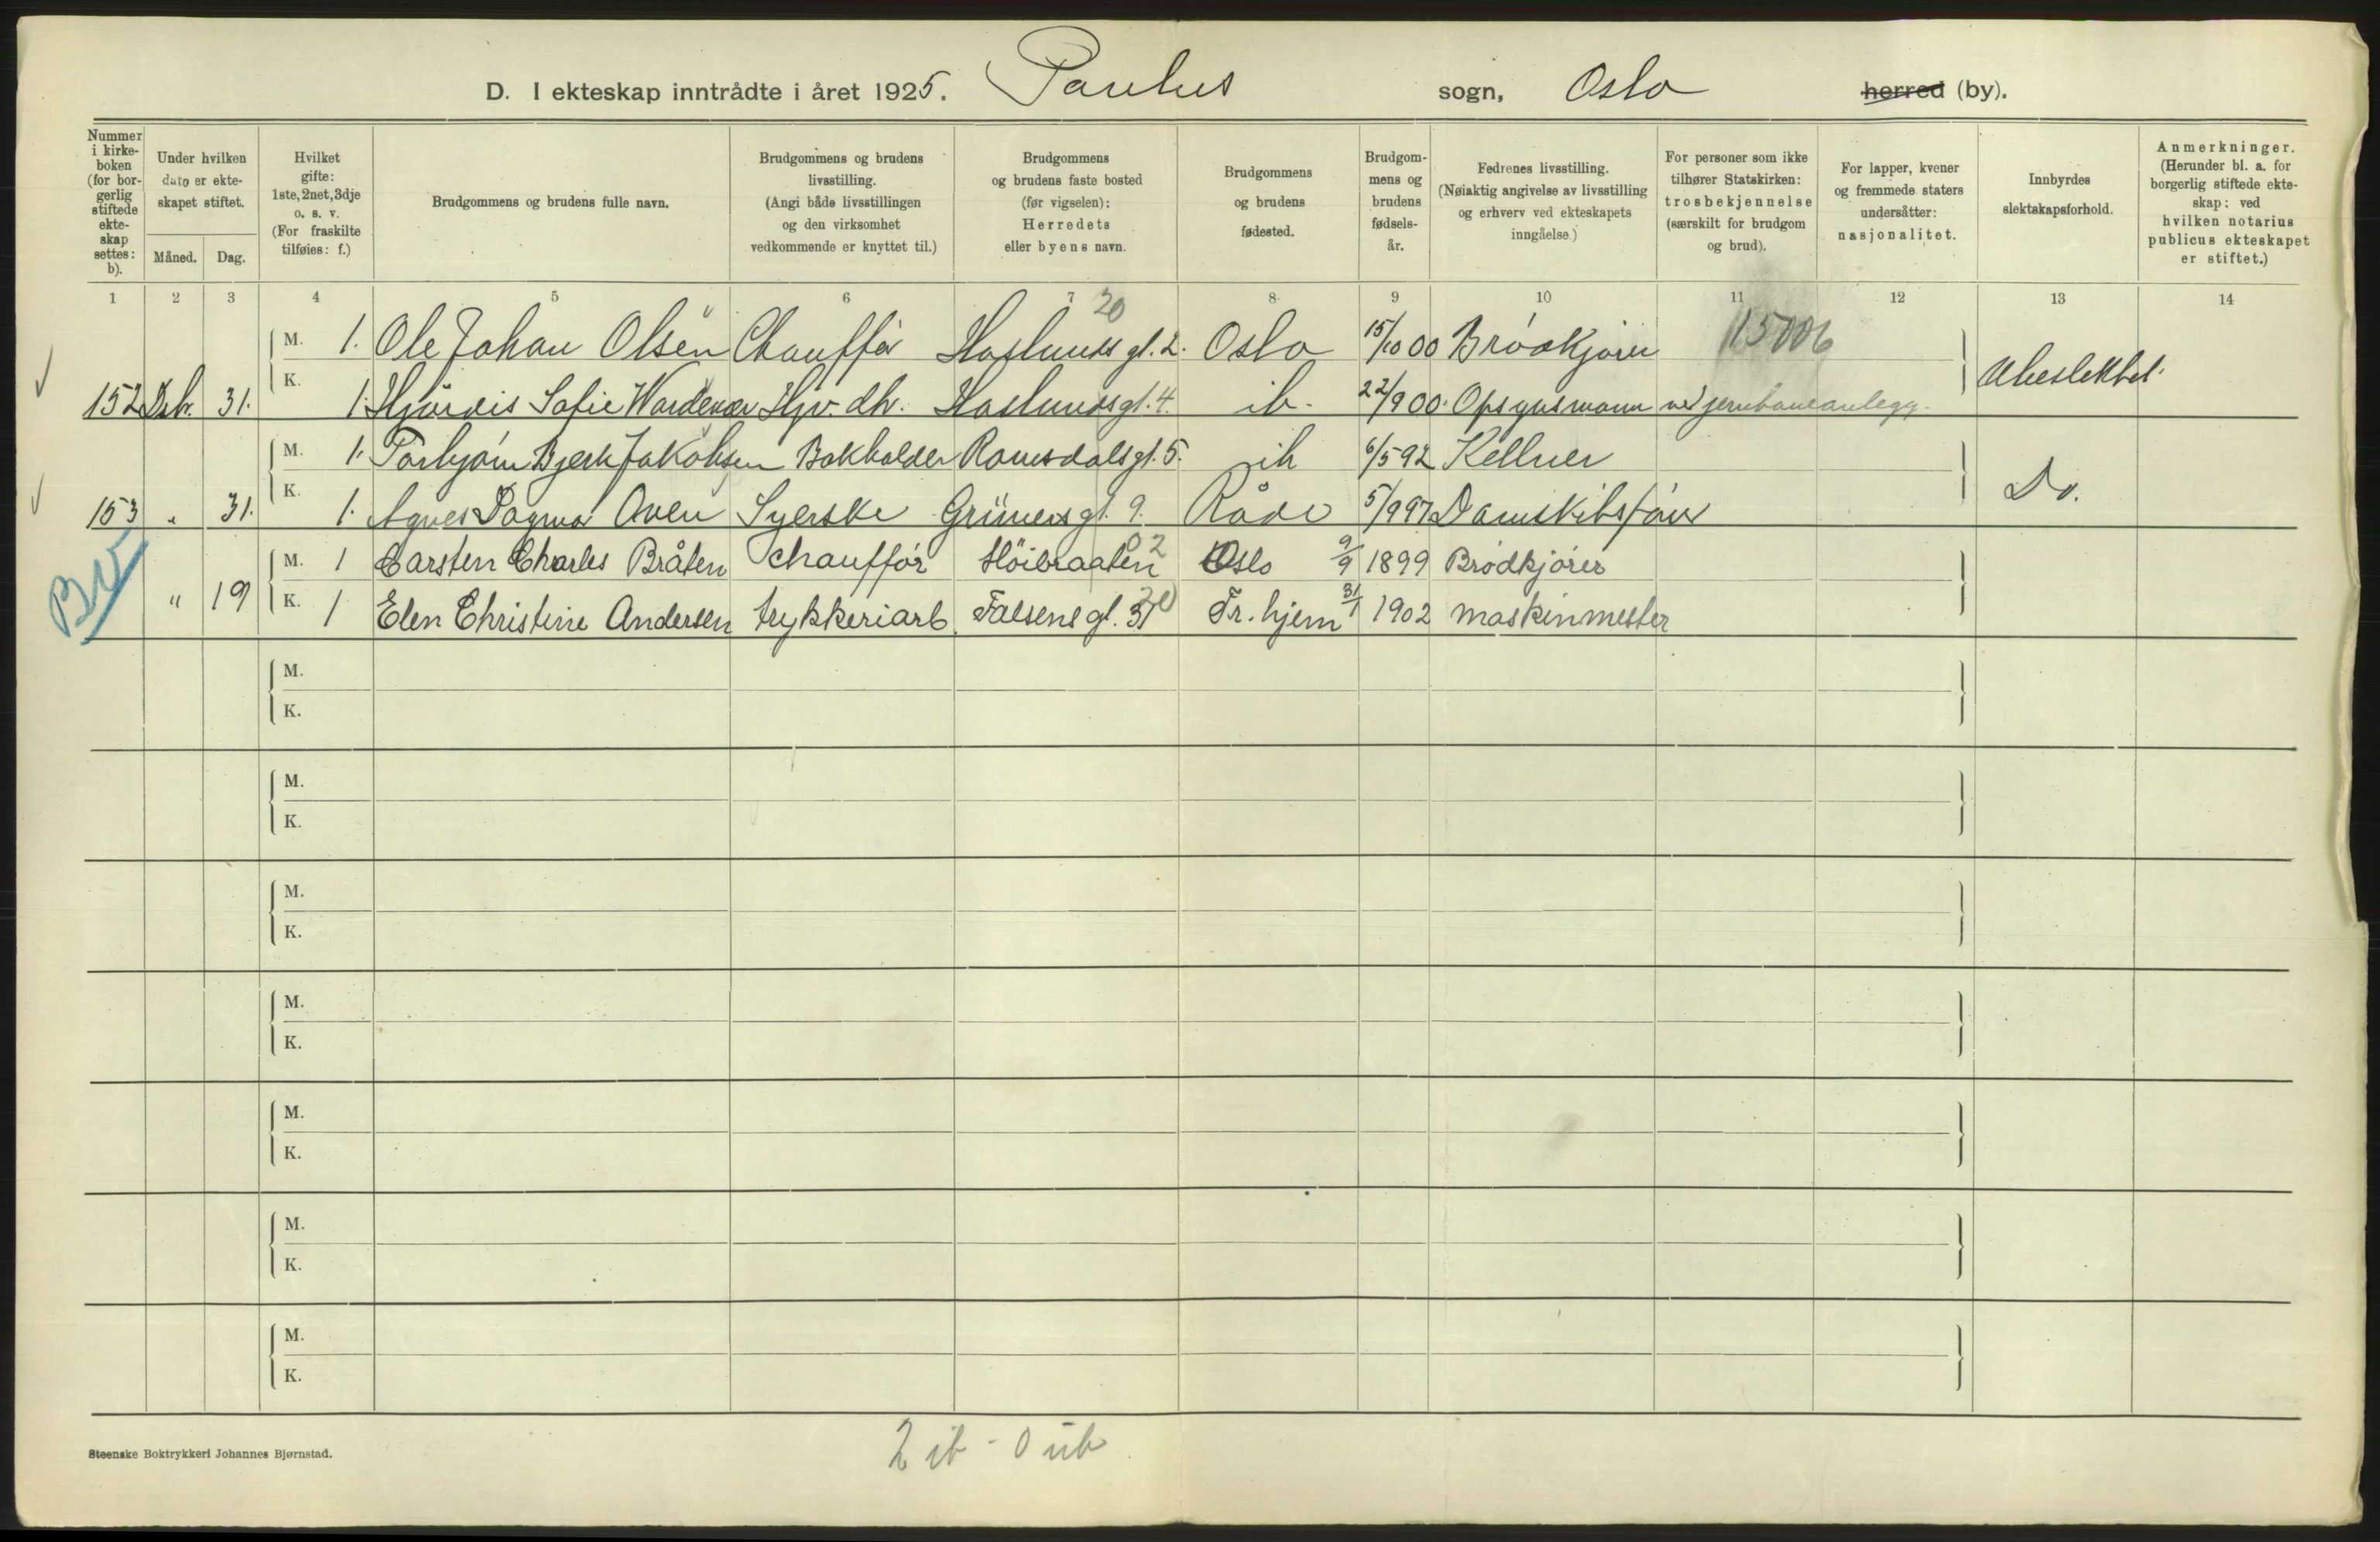 D. I ekteskap inntrådte i året 1925. Paulus sogn, Oslo herred (by).
Nummer i kirke-boken (for bor-gerlig stiftede ekte-skap settes: b).
Under hvilken dato er ekte-skapet stiftet.
Måned. Dag.
Hvilket gifte: 1ste, 2net, 3dje o. s. v. (For fraskilte tilføies: f.)
Brudgommens og brudens fulle navn.
Brudgommens og brudens livsstilling. (Angi både livsstillingen og den virksomhet vedkommende er knyttet til.)
Brudgommens og brudens faste bosted (før vigselen): Herredets eller byens navn.
Brudgommens og brudens fødested.
Brudgom-mens og brudens fødsels-år.
Fedrenes livsstilling. (Nøiaktig angivelse av livsstilling og erhverv ved ekteskapets inngåelse.)
For personer som ikke tilhører Statskirken: trosbekjennelse (særskilt for brudgom og brud).
For lapper, kvener og fremmede staters undersåtter: nasjonalitet.
Innbyrdes slektskapsforhold.
Anmerkninger. (Herunder bl. a. for borgerlig stiftede ekte-skap: ved hvilken notarius publicus ekteskapet er stiftet.)
1 2 3 4 5 6 7 8 9 10 11 12 13 14
20
M. 1. Ole Johan Olsen Chauffør Haslunds gt. 2. Oslo 15/10 00 Brødkjører 15006
152 Dsb. 31. K. 1. Hjørdis Sofie Wardenær Hjv. dtr. Haslunds gt. 4. ib. 22/9 00. Opsynsmann ved jernbaneanlegg. Ubeslektet.
M. 1. Torbjørn Bjerk Jakobsen Bokholder Romsdalsgt. 5. ib 6/5 92 Kellner
153 " 31. K. 1. Agnes Dagmar Aven Syerske Grüners gt. 9. Råde 5/9 97 Damskibsfører Do.
02
M. 1 Carsten Charles Bråten chauffør Höibraaten Oslo 9/9 1899 Brødkjører
Bv " 19 K. 1 Elen Christine Andersen trykkeriarb. Falsens gt. 31 20 Fr.hjem 31/1 1902 maskinmester
M.
K.
M.
K.
M.
K.
M.
K.
M.
K.
M.
K.
M.
K.
Steenske Boktrykkeri Johannes Bjørnstad.
2 ib - 0 ub